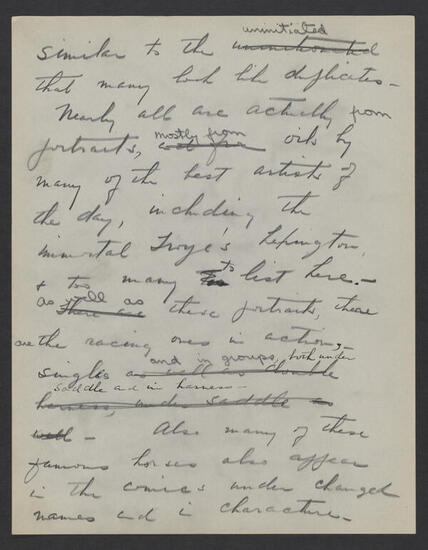 uninitiated
similar to the
that many look like duplicates -
Nearly all are actually from
mostly from
portraits, and from oils by
many of the best artists of
the day, including the
immortal Troye's Lexington,
to
& too many list here. -
well
as There are as these portraits, there
are the racing ones in action, -
and in groups, both under
singles as well as double
saddle and in harness -
harness, under saddle as
well - Also many of these
famous horses also appear
in the comics under changed
names and in characture -